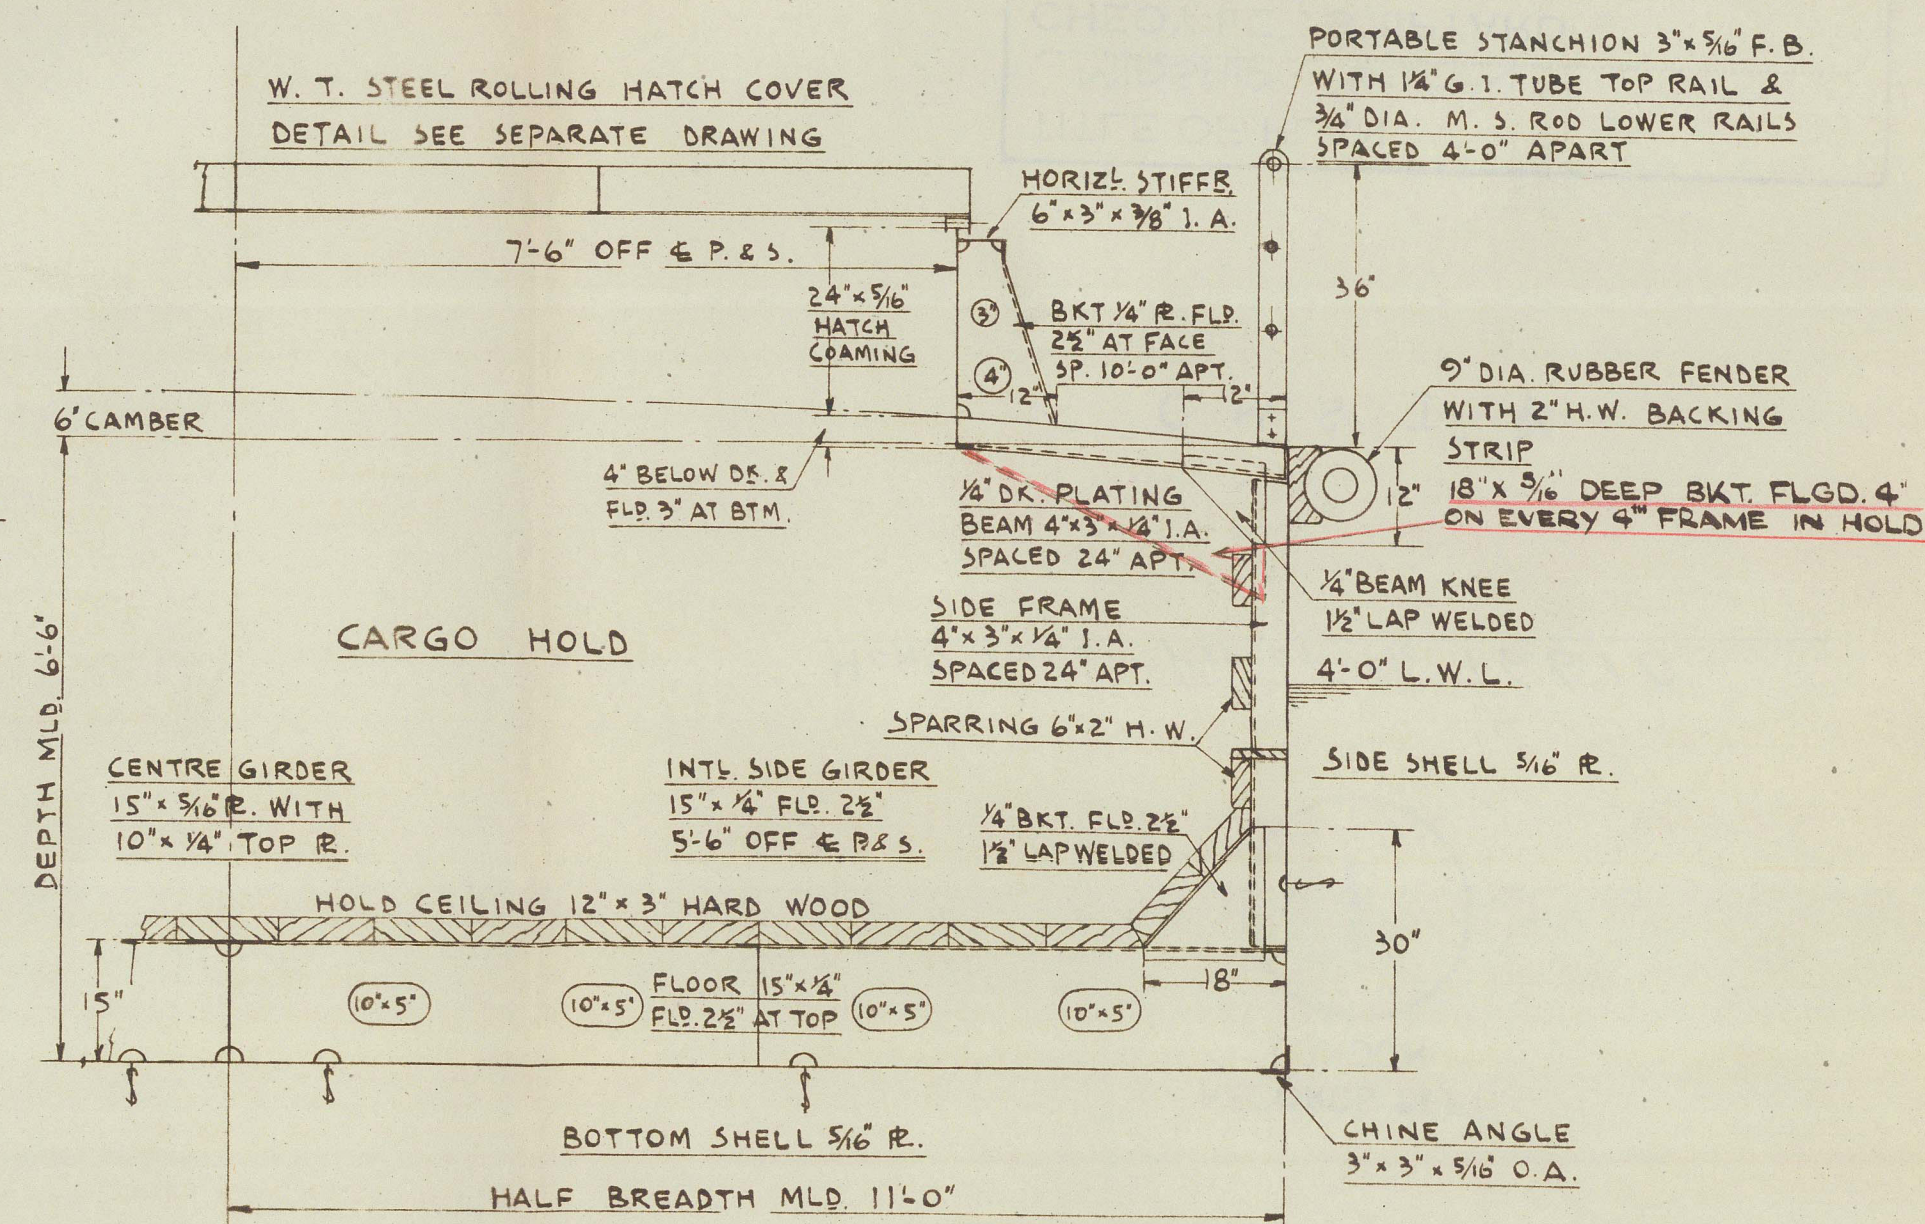 W. T. STEEL ROLLING HATCH COVER
DETAIL SEE SEPARATE DRAWING
PORTABLE STANCHION 3"x 5/16" F. B.
WITH 1¼" G. I. TUBE TOP RAIL &
3/4" DIA. M. S. ROD LOWER RAILS
SPACED 4'-0" APART
HORIZL. STIFFR.
6" x 3" x 3/8" I. A.
7'-6" OFF ℄ P. & S.
24" x 5/16"
HATCH
COAMING
3"
4"
12"
BKT ¼" PL. FLD.
2½" AT FACE
SP. 10'-0" APT.
12"
36"
9" DIA. RUBBER FENDER
WITH 2" H.W. BACKING
STRIP
18" X 5/16" DEEP BKT. FLGD. 4"
ON EVERY 4TH FRAME IN HOLD
12"
6" CAMBER
4" BELOW DK. &
FLD. 3" AT BTM.
¼" DK. PLATING
BEAM 4"x3"x¼" I.A.
SPACED 24" APT.
¼" BEAM KNEE
1½" LAP WELDED
SIDE FRAME
4"x 3"x ¼" I.A.
SPACED 24" APT.
4'-0" L.W.L.
CARGO HOLD
DEPTH MLD. 6'-6"
SPARRING 6"x2" H.W.
SIDE SHELL 5/16" PL.
CENTRE GIRDER
15" x 5/16" PL. WITH
10" x ¼" TOP PL.
INTL. SIDE GIRDER
15" x ¼" FLD. 2½"
5'-6" OFF ℄ P.& S.
¼" BKT. FLD. 2½"
1½" LAP WELDED
HOLD CEILING 12" x 3" HARD WOOD
30"
15"
18"
10"x5"
10"x5"
FLOOR 15"x¼"
FLD. 2½" AT TOP
10"x5"
10"x5"
BOTTOM SHELL 5/16" PL.
CHINE ANGLE
3" x 3" x 5/16" O.A.
HALF BREADTH MLD. 11'-0"